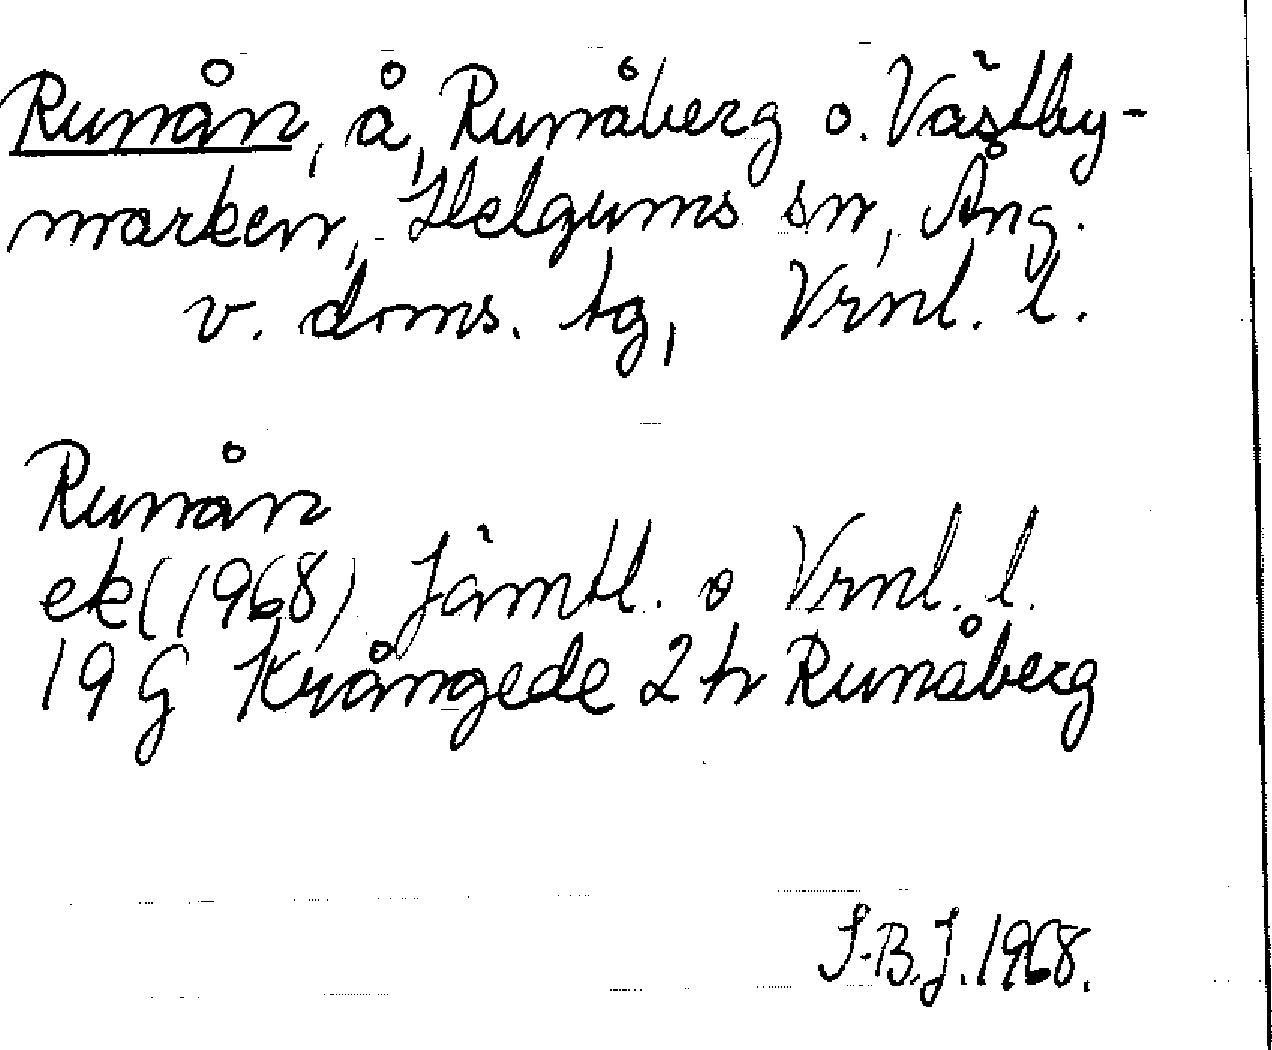 Runån, å, Runåberg o. Västby-
marken, Helgums sn, Ång.
v. doms. tg, Vrnl. l.
Runån
ek (1968) Jämtl. o Vrnl. l.
19 G Krångede 2 h Runåberg
S-B.J. 1968.